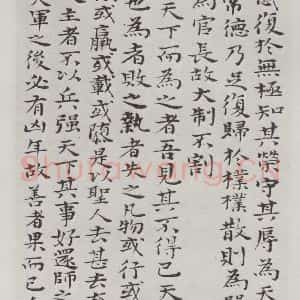 忒復於無極知其榮守其辱為天
常德乃足復歸於樸樸散則為
為官長故大制不割
天下而為之者吾見其不得已天
也為者敗之執者失之凡物或行或
或羸或載或隳是以聖人去甚去
主者不以兵强天下其事好還師之
大軍之後必有凶年故善者果而已
Shufawang.CN